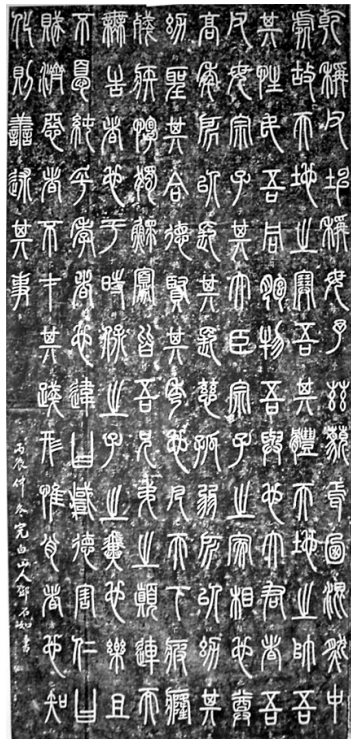 乾稱父坤稱母予茲藐焉乃混然中
處故天地之塞吾其體天地之帥吾
其性民吾同胞物吾與也大君者吾
父母宗子其大臣宗子之家相也尊
高年所以長其長慈孤弱所以幼其
幼聖其合德賢其秀也凡天下疲癃
殘疾惸獨鰥寡皆吾兄弟之顛連而
無告者也于時保之子之翼也樂且
不憂純乎孝者也違曰悖德害仁曰
賊濟惡者不才其踐形惟肖者也知
化則善述其事
丙辰仲冬完白山人鄧石如書